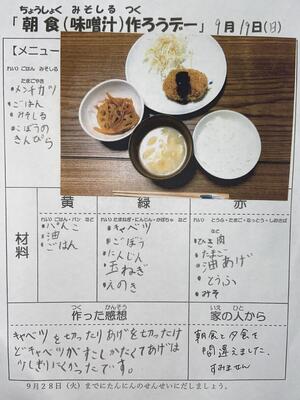 ちょうしょく みそしる つく
「朝食(味噌汁)作ろうデー」9月19日(日)
【メニュー
れい) ごはん みそしる
たまごやき
・メンチカツ
・ごはん
・みそしる
・ごぼうの
きんぴら
材料
黄
れい) ごはん・パン など
・パンこ
・油
・ごはん
緑
れい) たまねぎ・にんじん・かぼちゃ など
・キャベツ
・ごぼう
・にんじん
・玉ねぎ
・えのき
赤
れい) とうふ・たまご・なっとう・しおさば
など
・ひき肉
・たまご
・油あげ
・とうふ
・みそ
つく かんそう
作った感想
キャベツを切ったりあげを切ったけ
どキャベツがすこしかたくてあげは
少しきりにくかったです。
いえ ひと
家の人から
朝食と夕食を
間違えました。
すみません
9月28日(火)までにたんにんのせんせいにだしましょう。